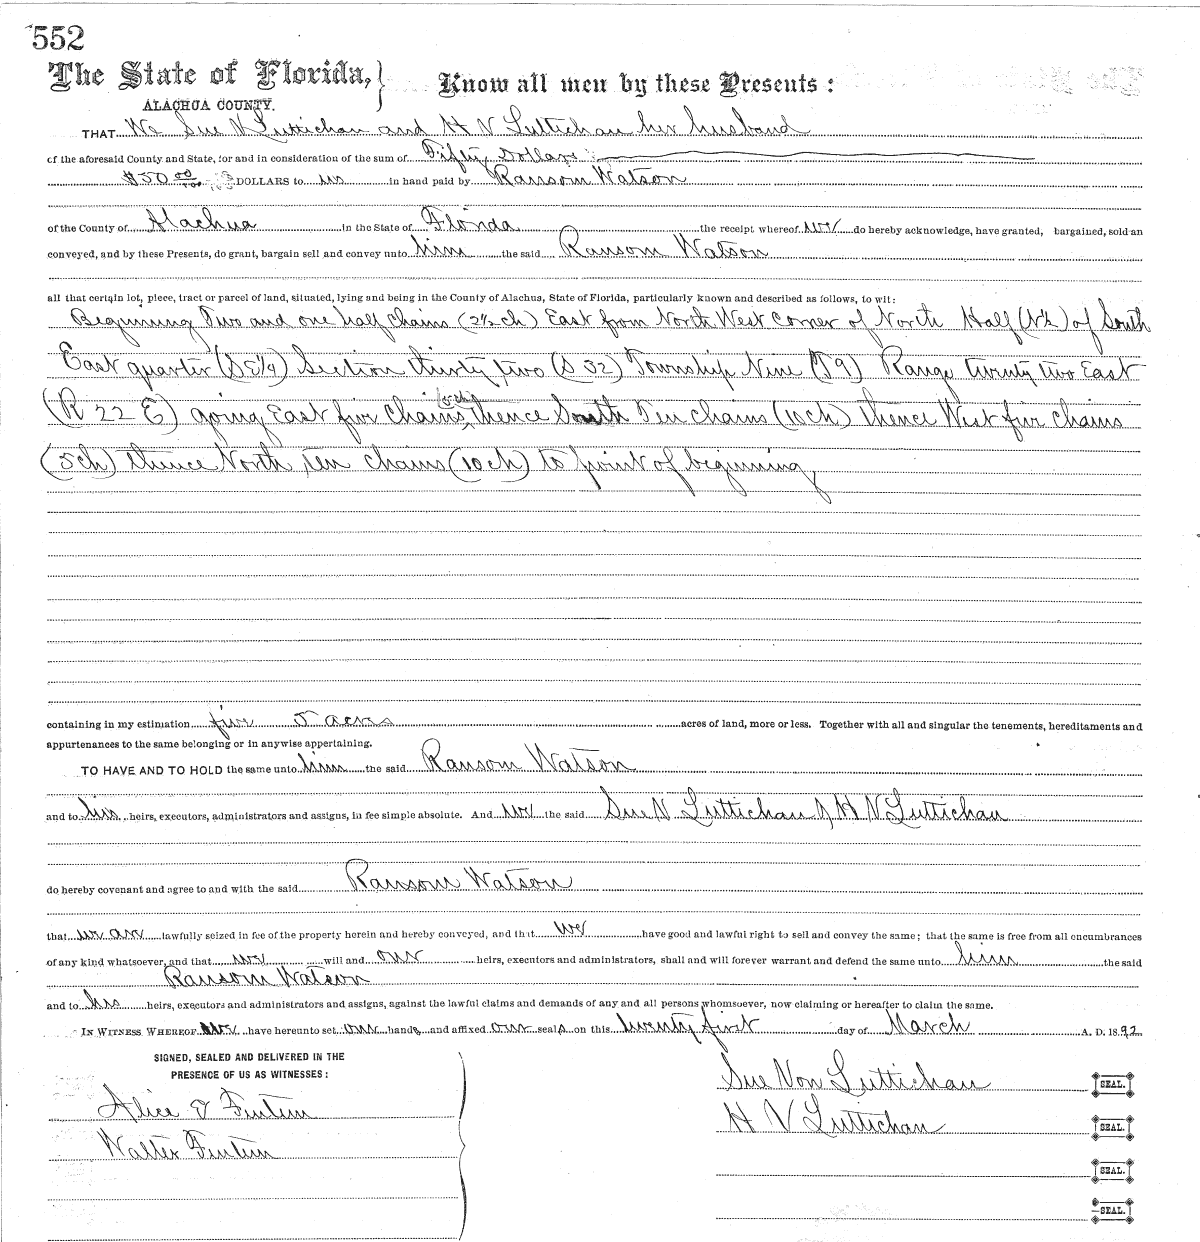 552
The State of Florida, } Know all men by these Presents:
ALACHUA COUNTY.
THAT We Sue V Luttichau and H V Luttichau her husband
of the aforesaid County and State, for and in consideration of the sum of Fifty Dollars
$50 00/100 DOLLARS to us in hand paid by Ransom Watson
of the County of Alachua in the State of Florida the receipt whereof we do hereby acknowledge, have granted, bargained, sold an
conveyed, and by these Presents, do grant, bargain sell and convey unto him the said Ransom Watson
all that certain lot, piece, tract or parcel of land, situated, lying and being in the County of Alachua, State of Florida, particularly known and described as follows, to wit:
Beginning Two and one half chains (2½ ch) East from North West corner of North Half (N½) of South
East quarter (SE¼) Section thirty two (S 32) Township Nine (T9) Range twenty two East
(R 22 E) going East five chains (5ch) thence South Ten chains (10ch) thence West five chains
(5ch) thence North ten chains (10ch) to point of beginning,
containing in my estimation five 5 acres acres of land, more or less. Together with all and singular the tenements, hereditaments and
appurtenances to the same belonging or in anywise appertaining.
TO HAVE AND TO HOLD the same unto him the said Ransom Watson
and to his heirs, executors, administrators and assigns, in fee simple absolute. And we the said Sue V Luttichau & H V Luttichau
do hereby covenant and agree to and with the said Ransom Watson
that we are lawfully seized in fee of the property herein and hereby conveyed, and that we have good and lawful right to sell and convey the same; that the same is free from all encumbrances
of any kind whatsoever, and that we will and our heirs, executors and administrators, shall and will forever warrant and defend the same unto him the said
Ransom Watson
and to his heirs, executors and administrators and assigns, against the lawful claims and demands of any and all persons whomsoever, now claiming or hereafter to claim the same.
IN WITNESS WHEREOF we have hereunto set our hands and affixed our seals on this twenty first day of March A. D. 1892
SIGNED, SEALED AND DELIVERED IN THE
PRESENCE OF US AS WITNESSES:
Sue Von Luttichau SEAL.
Alice
H V Luttichau SEAL.
Walter
SEAL.
SEAL.